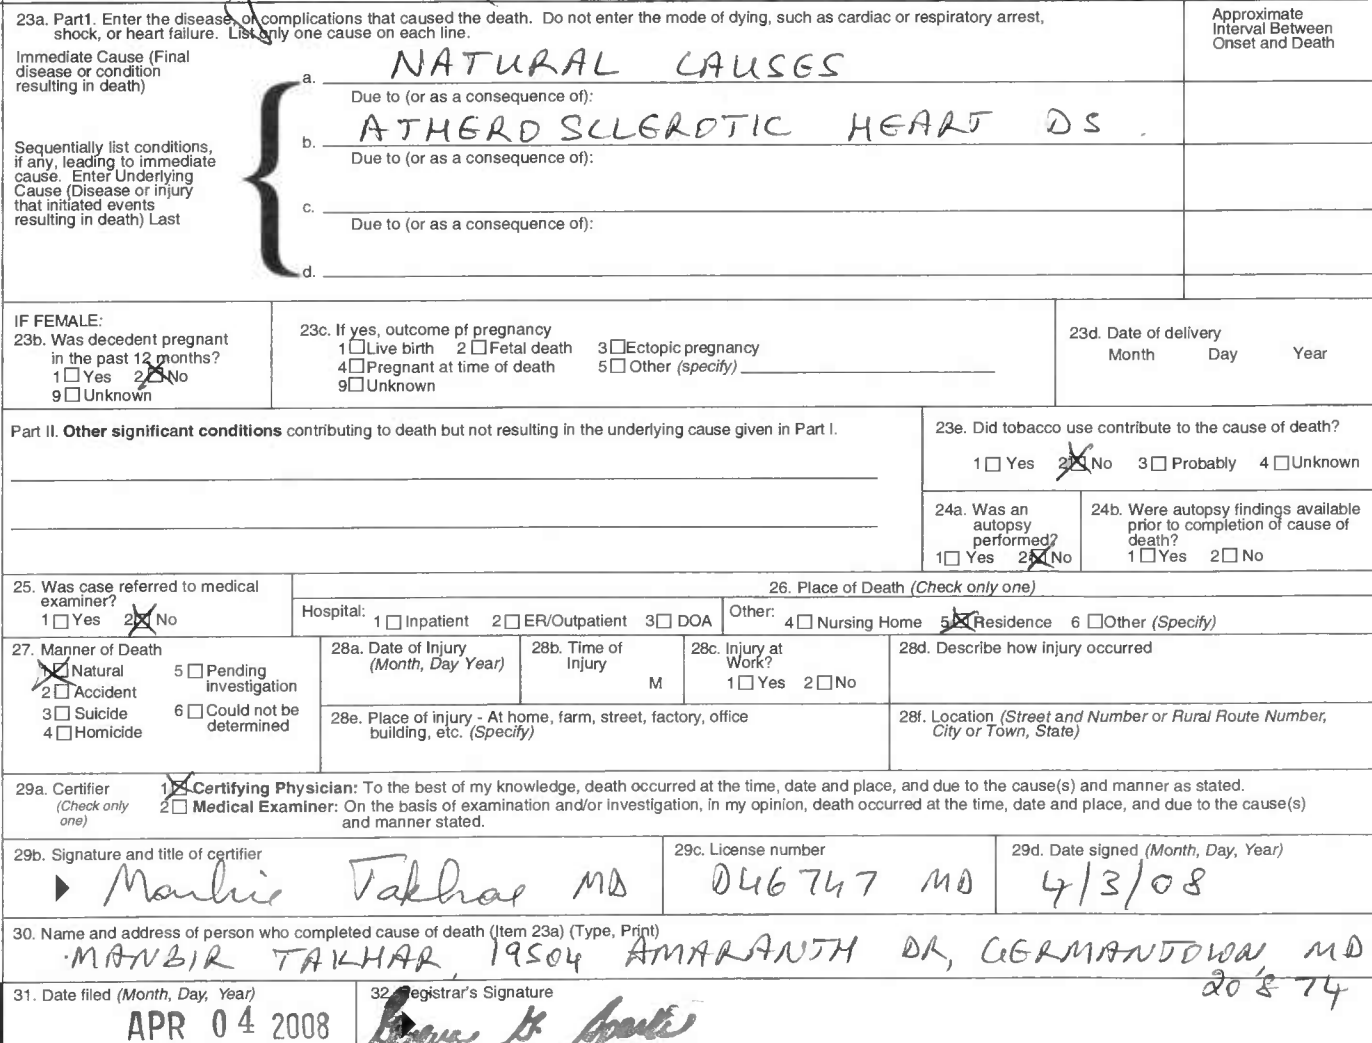 23a. Part1. Enter the disease, or complications that caused the death. Do not enter the mode of dying, such as cardiac or respiratory arrest,
shock, or heart failure. List only one cause on each line.
Approximate
Interval Between
Onset and Death
Immediate Cause (Final
disease or condition
resulting in death)
a. NATURAL CAUSES
Due to (or as a consequence of):
b. ATHEROSCLEROTIC HEART DS.
Sequentially list conditions,
if any, leading to immediate
cause. Enter Underlying
Cause (Disease or injury
that initiated events
resulting in death) Last
Due to (or as a consequence of):
c.
Due to (or as a consequence of):
d.
IF FEMALE:
23b. Was decedent pregnant
in the past 12 months?
1 ☐ Yes 2 ☒ No
9 ☐ Unknown
23c. If yes, outcome pf pregnancy
1 ☐ Live birth 2 ☐ Fetal death 3 ☐ Ectopic pregnancy
4 ☐ Pregnant at time of death 5 ☐ Other (specify)
9 ☐ Unknown
23d. Date of delivery
Month Day Year
Part II. Other significant conditions contributing to death but not resulting in the underlying cause given in Part I.
23e. Did tobacco use contribute to the cause of death?
1 ☐ Yes 2 ☒ No 3 ☐ Probably 4 ☐ Unknown
24a. Was an
autopsy
performed?
1 ☐ Yes 2 ☒ No
24b. Were autopsy findings available
prior to completion of cause of
death?
1 ☐ Yes 2 ☐ No
25. Was case referred to medical
examiner?
1 ☐ Yes 2 ☒ No
26. Place of Death (Check only one)
Hospital: 1 ☐ Inpatient 2 ☐ ER/Outpatient 3 ☐ DOA Other: 4 ☐ Nursing Home 5 ☒ Residence 6 ☐ Other (Specify)
27. Manner of Death
1 ☒ Natural 5 ☐ Pending
investigation
2 ☐ Accident
3 ☐ Suicide 6 ☐ Could not be
determined
4 ☐ Homicide
28a. Date of Injury
(Month, Day Year)
28b. Time of
Injury
M
28c. Injury at
Work?
1 ☐ Yes 2 ☐ No
28d. Describe how injury occurred
28e. Place of injury - At home, farm, street, factory, office
building, etc. (Specify)
28f. Location (Street and Number or Rural Route Number,
City or Town, State)
29a. Certifier
(Check only
one)
1 ☒ Certifying Physician: To the best of my knowledge, death occurred at the time, date and place, and due to the cause(s) and manner as stated.
2 ☐ Medical Examiner: On the basis of examination and/or investigation, in my opinion, death occurred at the time, date and place, and due to the cause(s)
and manner stated.
29b. Signature and title of certifier
Manbir Takhar MD
29c. License number
D46747 MD
29d. Date signed (Month, Day, Year)
4/3/08
30. Name and address of person who completed cause of death (Item 23a) (Type, Print)
MANBIR TAKHAR, 19504 AMARANTH DR, GERMANTOWN, MD
20874
31. Date filed (Month, Day, Year)
APR 04 2008
32. Registrar's Signature